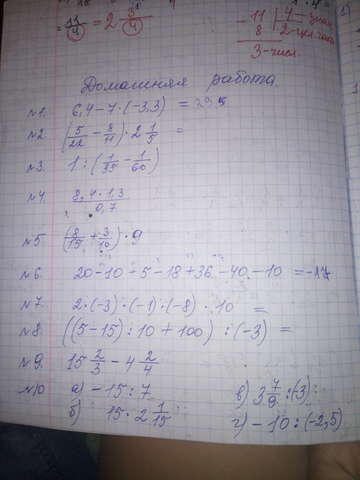 = 11/4 = 2 3/4
- 11 | 4 - знам.
8 | 2-цел. часть
3-числ.
Домашняя работа.
№1. 6,4-7·(-3,3) = 29,5
№2. (5/22 - 3/11)·2 1/5 =
№3. 1:(1/35 - 1/60)
№4. 8,4·1,3/0,7
№5 (8/15 + 3/10)·9
№6. 20-10-5-18+36-40-10 = -17
№7. 2·(-3)·(-1)·(-8)·10 =
№8. ((5-15):10+100):(-3) =
№9. 15 2/3 - 4 2/4
№10 а) -15:7 в) 3 7/9:(-3)
б) 15·2 1/15 г) -10:(-2,5)